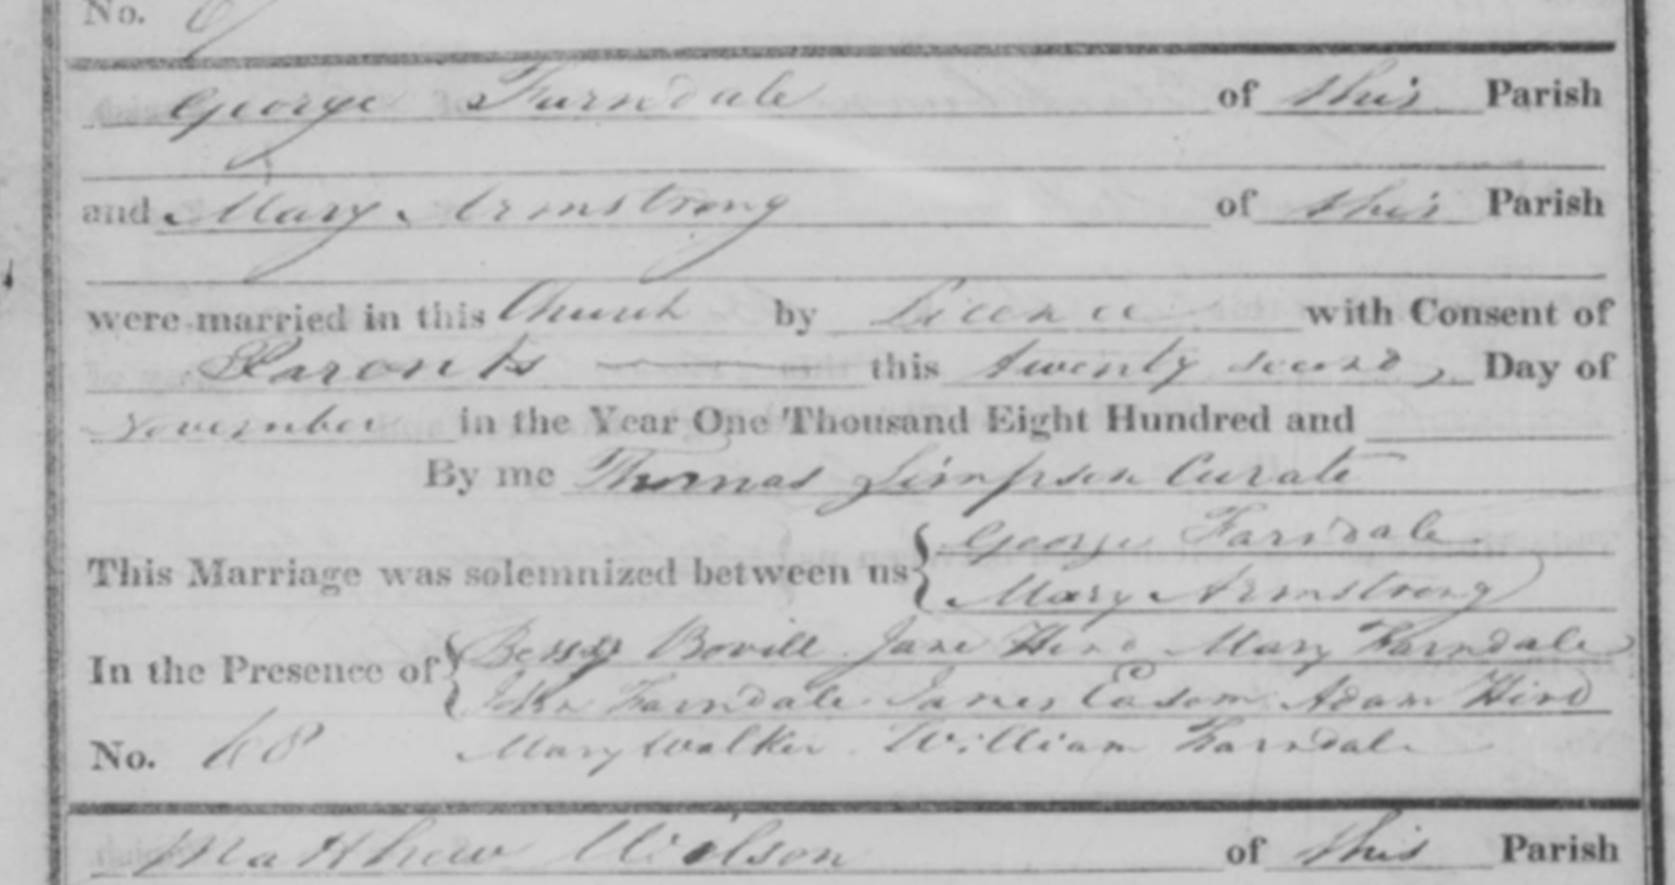 No.
George Farndale of this Parish
and Mary Armstrong of this Parish
were married in this Church by Licence with Consent of
Parents this twenty second Day of
November in the Year One Thousand Eight Hundred and
By me Thomas Simpson Curate
This Marriage was solemnized between us { George Farndale
Mary Armstrong
In the Presence of { Bessy Bovill Jane Hind Mary Farndale
John Farndale James Easom Adam Hind
No. 68 Mary Walker William Farndale
Matthew Wilson of this Parish